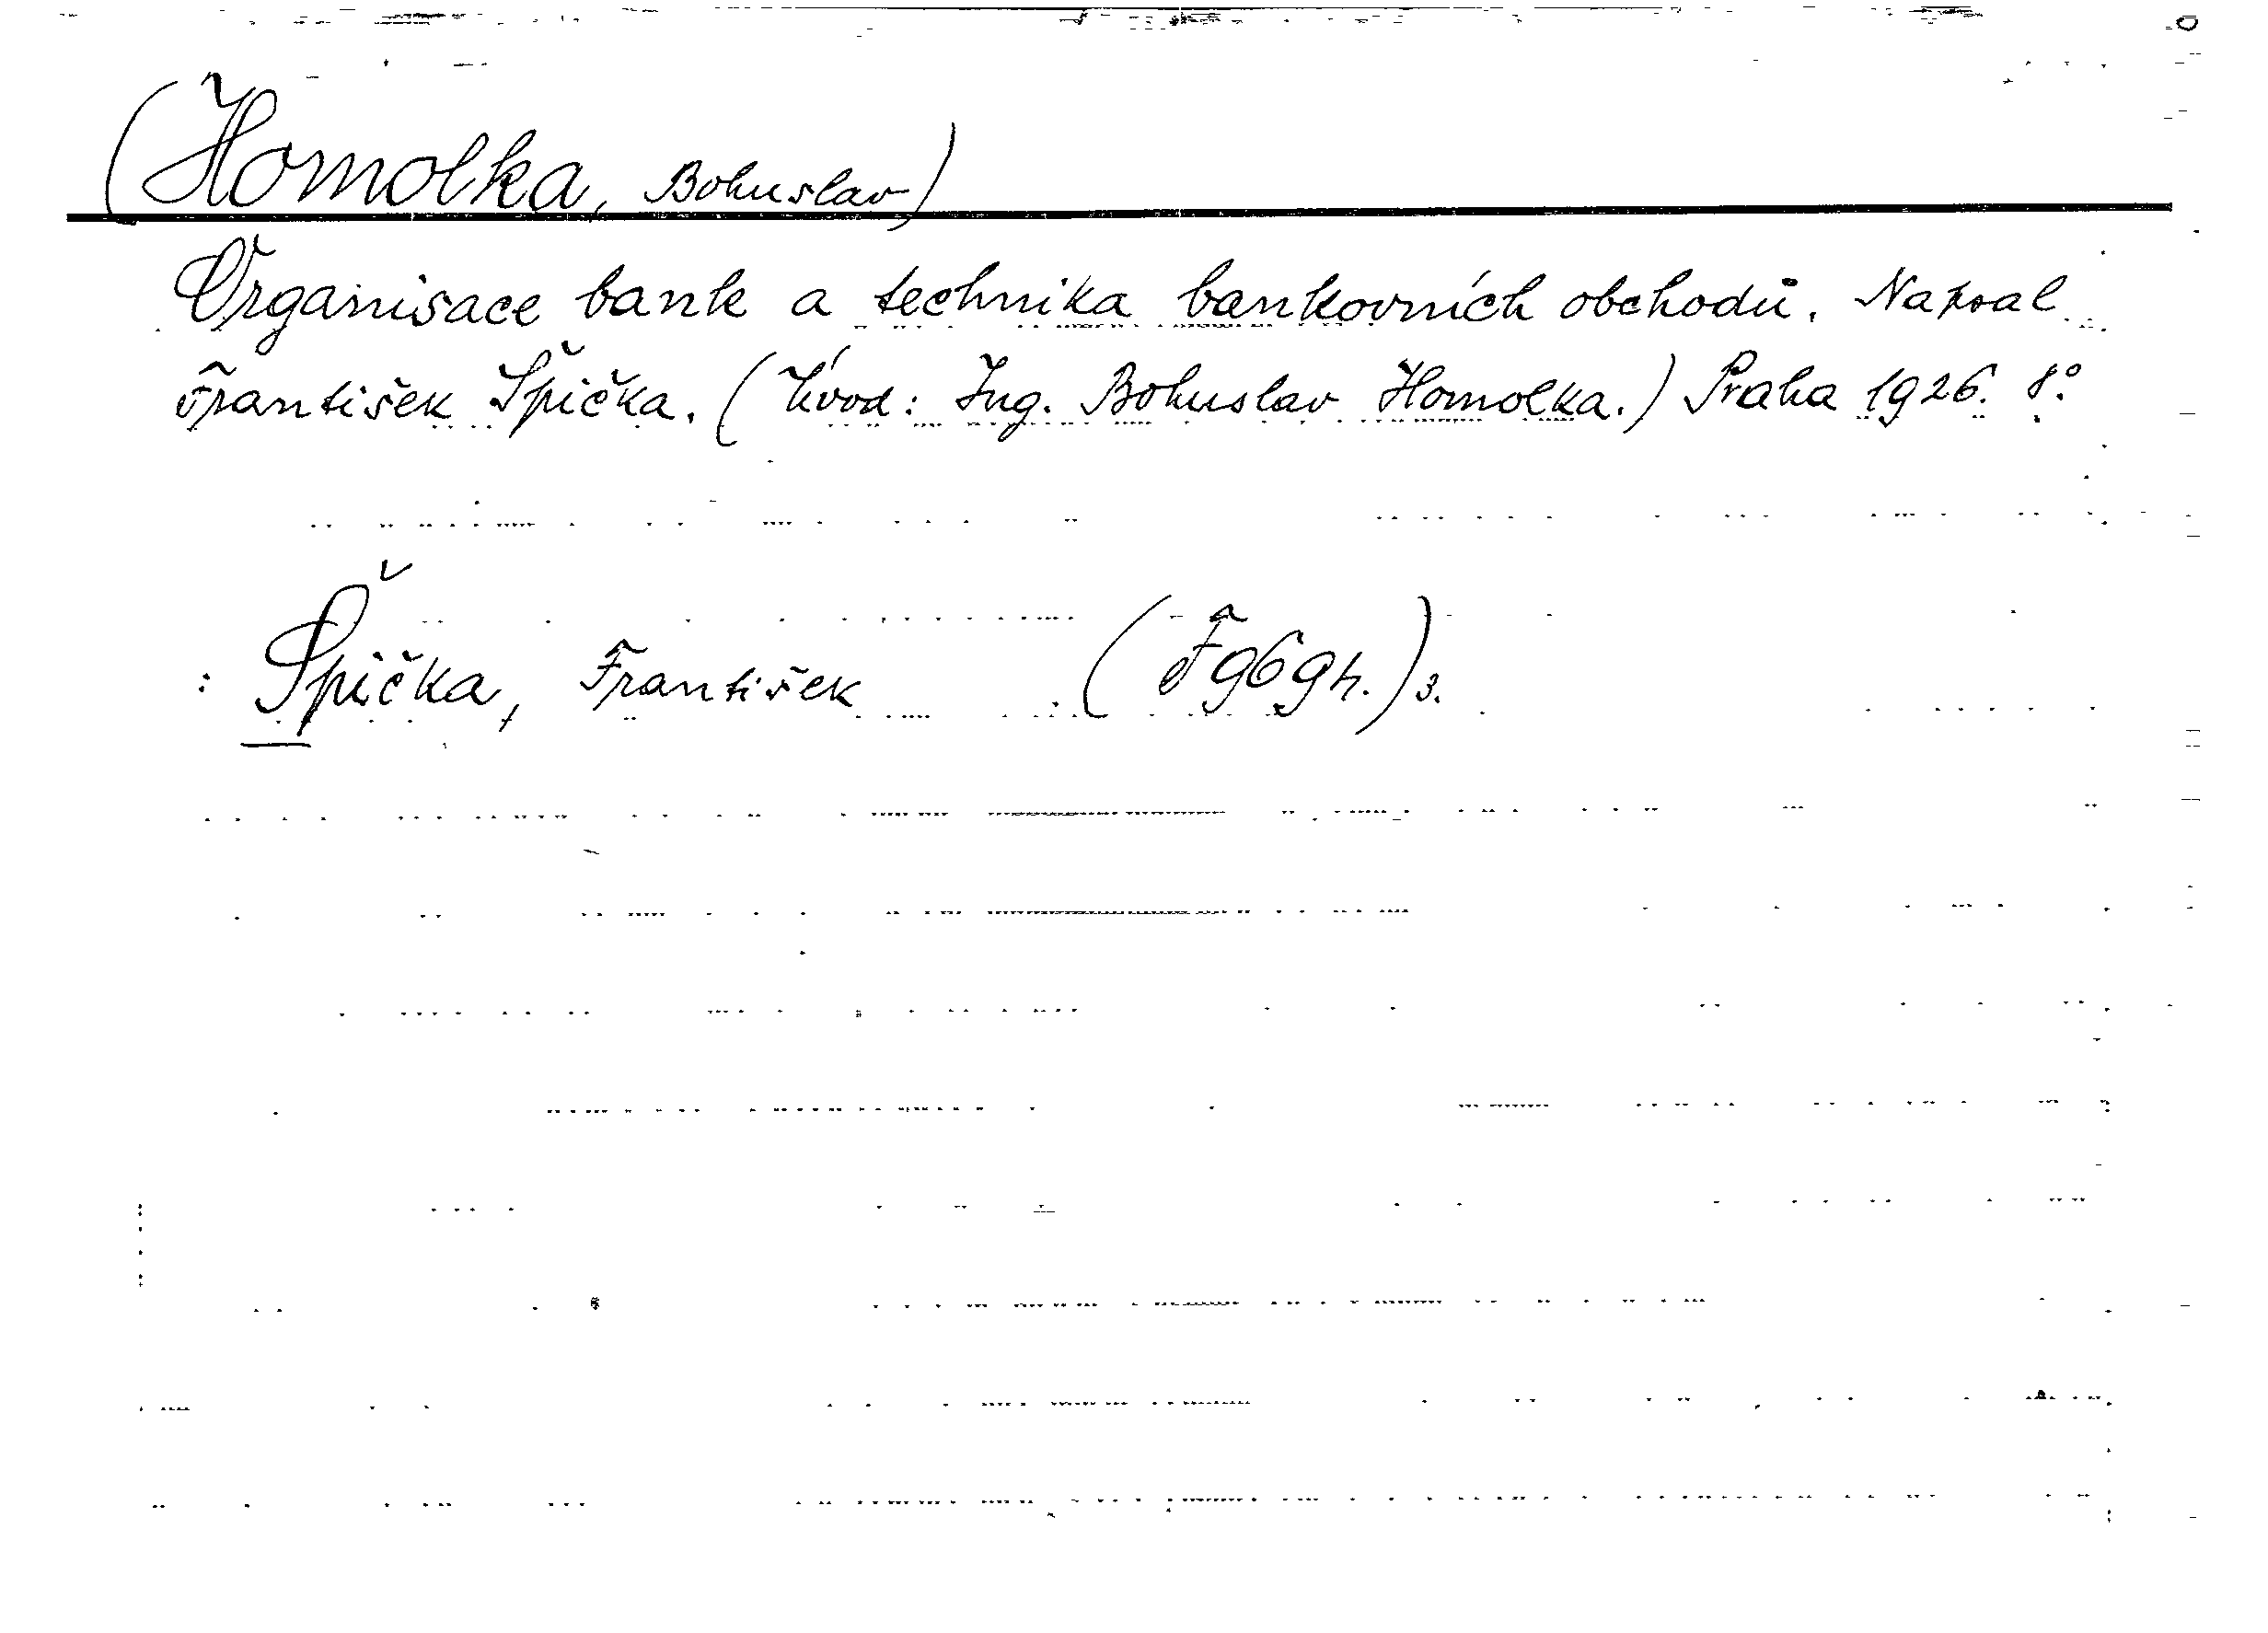 (Homolka, Bohuslav)
Organisace bank a technika bankovních obchodů. Napsal
František Špička. (Úvod: Ing. Bohuslav Homolka.) Praha 1926. 8°.
: Špička, František (F969h.)3.